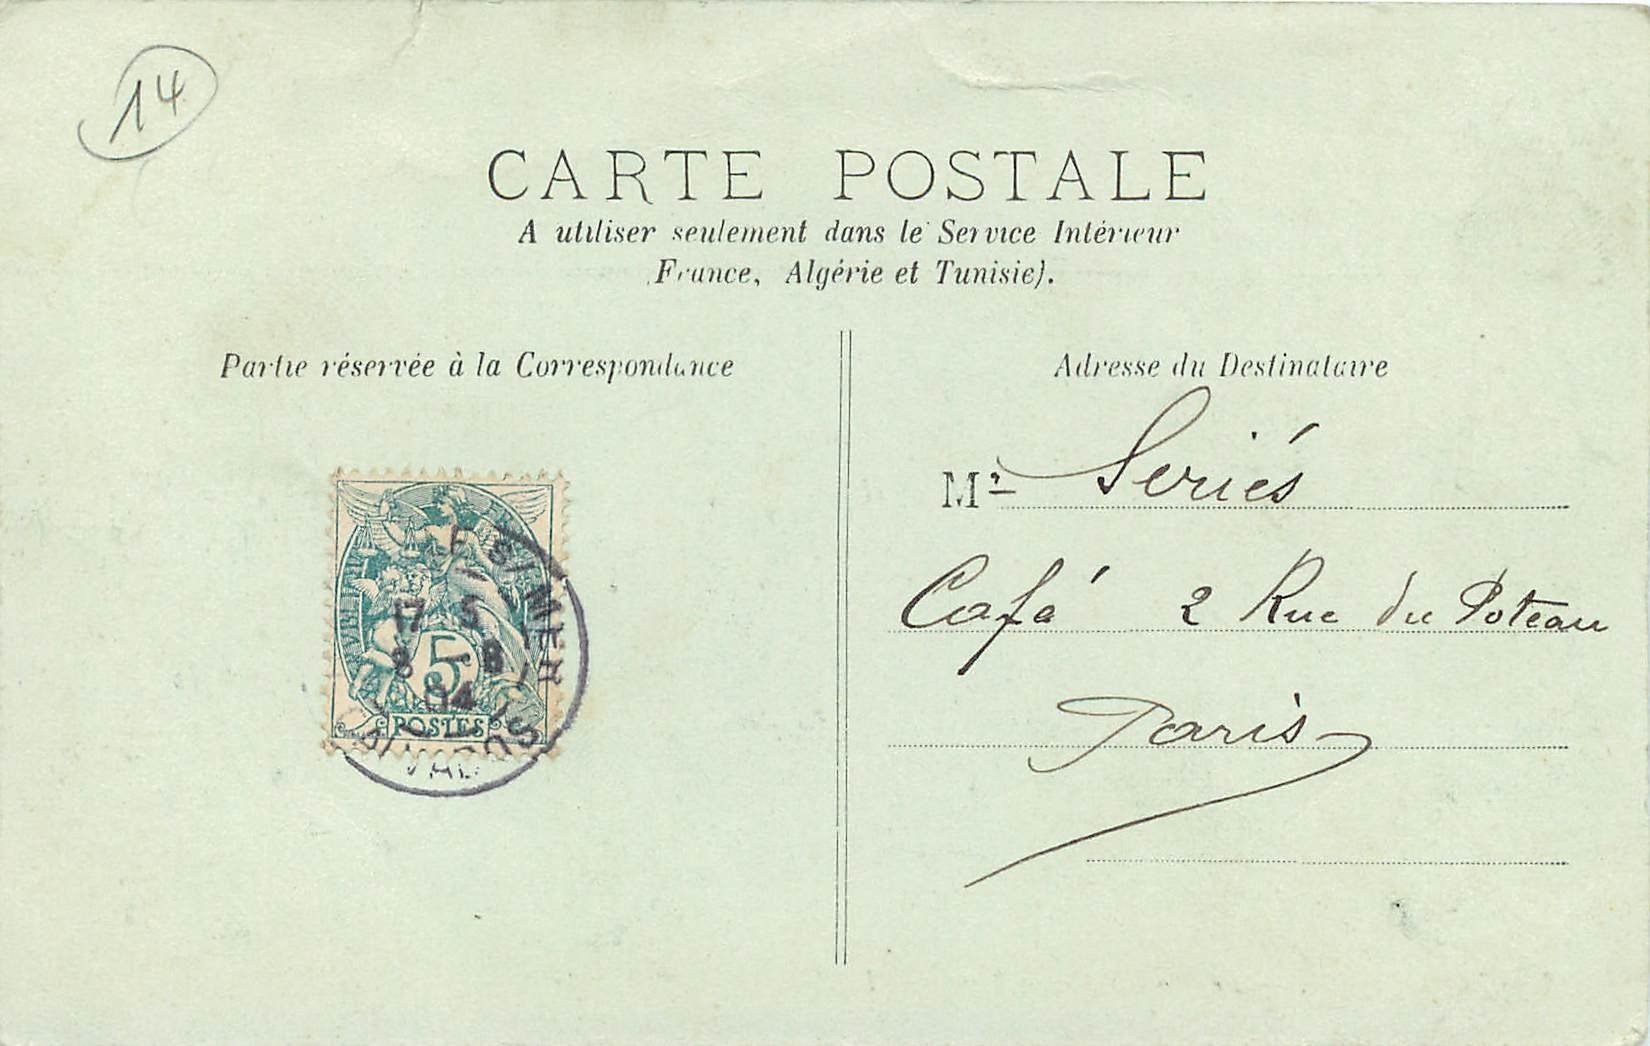 14
CARTE POSTALE
A utiliser seulement dans le Service Intérieur
France, Algérie et Tunisie).
Partie réservée à la Correspondance
Adresse du Destinataire
Mr Seriés
Café 2 Rue du Poteau
Paris
S/MER
17 5
8 - 8
04
CALVADOS
5
POSTES